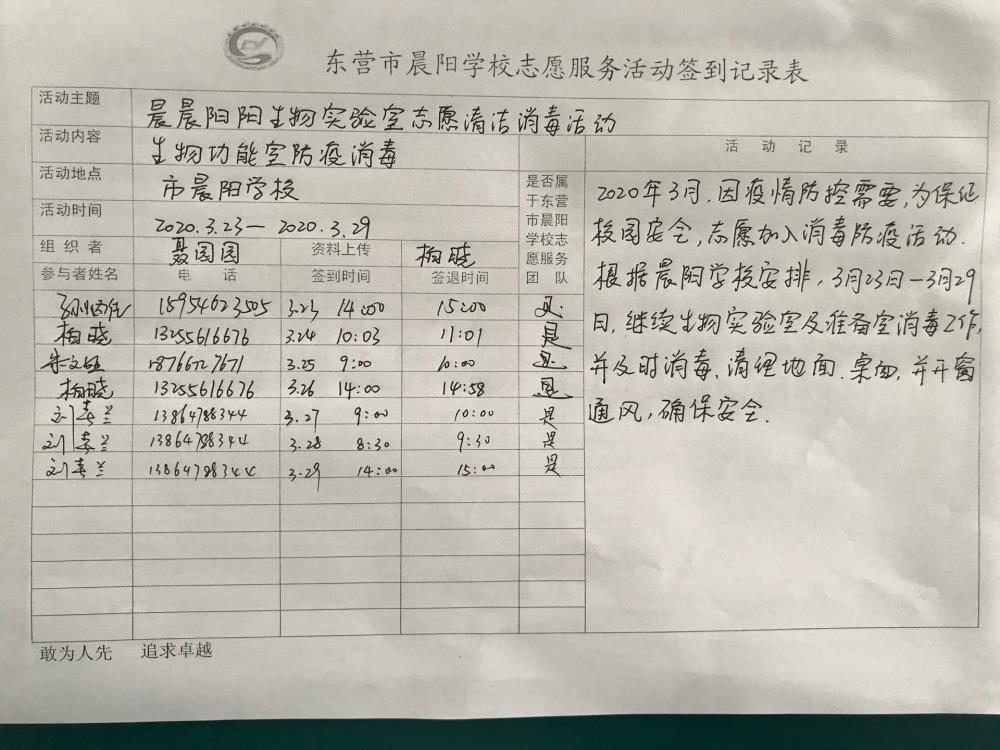 东营市晨阳学校志愿服务活动签到记录表
活动主题 晨晨阳阳生物实验室志愿清洁消毒活动
活动内容 生物功能室防疫消毒
活动地点 市晨阳学校
活动时间 2020.3.23—2020.3.29
组织者 聂园园 资料上传 柏晓
是否属
于东营
市晨阳
学校志
愿服务
团队
参与者姓名 电话 签到时间 签退时间
3.23 14:00 15:00 是
柏晓 13255616676 3.24 10:03 11:01 是
朱文 18766727671 3.25 9:00 10:00 是
柏晓 13255616676 3.26 14:00 14:58 是
刘春兰 13864788344 3.27 9:00 10:00 是
刘春兰 13864788344 3.28 8:30 9:30 是
刘春兰 13864788344 3.29 14:00 15:00 是
活动记录
2020年3月.因疫情防控需要,为保证
校园安全,志愿加入消毒防疫活动.
根据晨阳学校安排,3月23日—3月29
日,继续生物实验室及准备室消毒工作,
并及时消毒、清理地面、桌面,并开窗
通风,确保安全.
敢为人先 追求卓越